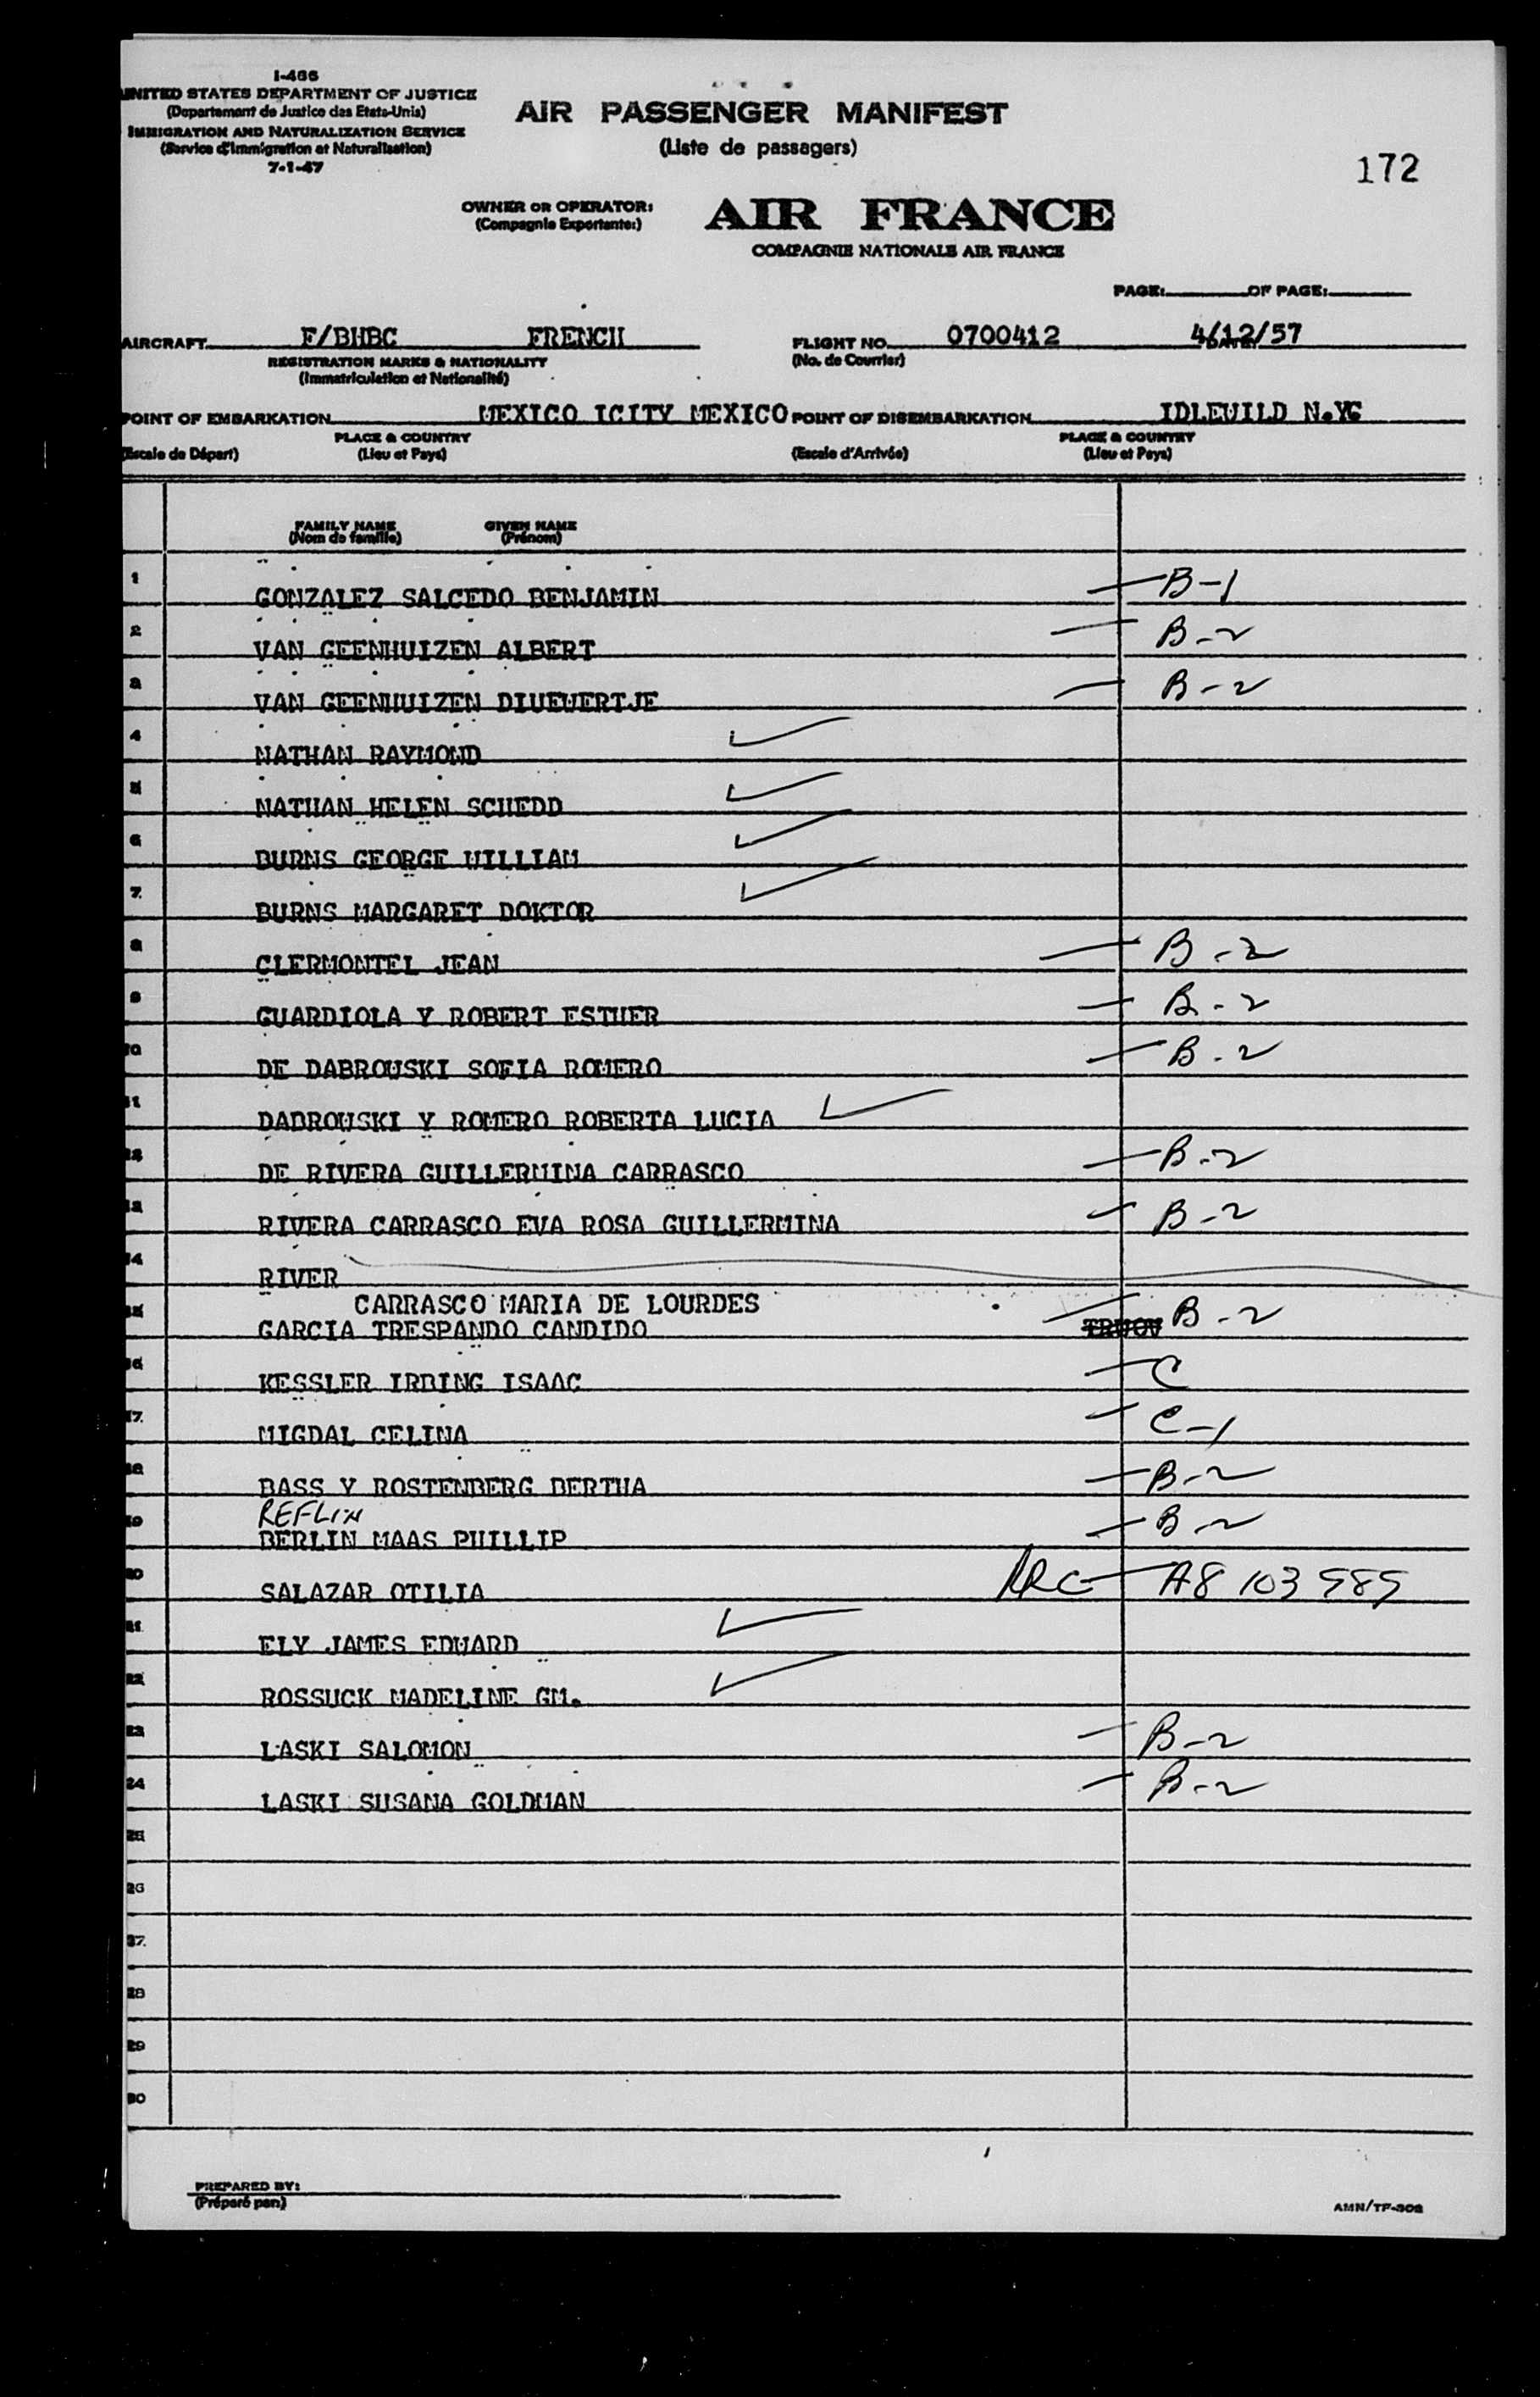 I-466
UNITED STATES DEPARTMENT OF JUSTICE
(Departement de Justice des Etats-Unis)
IMMIGRATION AND NATURALIZATION SERVICE
(Service d'Immigration et Naturalisation)
7-1-47
AIR PASSENGER MANIFEST
(Liste de passagers)
172
OWNER OR OPERATOR:
(Compagnie Exportante:)
AIR FRANCE
COMPAGNIE NATIONALE AIR FRANCE
PAGE: OF PAGE:
AIRCRAFT F/BHBC FRENCH FLIGHT NO. 0700412 4/12/57
REGISTRATION MARKS & NATIONALITY (No. de Courrier)
(Immatriculation et Nationalité)
POINT OF EMBARKATION MEXICO ICITY MEXICO POINT OF DISEMBARKATION IDLEWILD N.YG
PLACE & COUNTRY PLACE & COUNTRY
(Escale de Départ) (Lieu et Pays) (Escale d'Arrivée) (Lieu et Pays)
FAMILY NAME GIVEN NAME
(Nom de famille) (Prénom)
1 GONZALEZ SALCEDO BENJAMIN B-1
2 VAN GEENHUIZEN ALBERT B-2
3 VAN GEENHUIZEN DIUEWERTJE B-2
4 NATHAN RAYMOND
5 NATHAN HELEN SCHEDD
6 BURNS GEORGE WILLIAM
7 BURNS MARGARET DOKTOR
8 CLERMONTEL JEAN B-2
9 GUARDIOLA Y ROBERT ESTHER B-2
10 DE DABROWSKI SOFIA ROMERO B-2
11 DABROWSKI Y ROMERO ROBERTA LUCIA
12 DE RIVERA GUILLERMINA CARRASCO B-2
13 RIVERA CARRASCO EVA ROSA GUILLERMINA B-2
14 RIVER
CARRASCO MARIA DE LOURDES
15 GARCIA TRESPANDO CANDIDO B-2
16 KESSLER IRBING ISAAC C
17 MIGDAL CELINA C-1
18 BASS Y ROSTENBERG BERTHA B-2
REFLIN
19 BERLIN MAAS PHILLIP B-2
20 SALAZAR OTILIA ARC A8 103 585
21 ELY JAMES EDWARD
22 ROSSUCK MADELINE GM.
23 LASKI SALOMON B-2
24 LASKI SUSANA GOLDMAN B-2
25
26
27
28
29
30
PREPARED BY:
(Préparé par)
AMN/TF-302